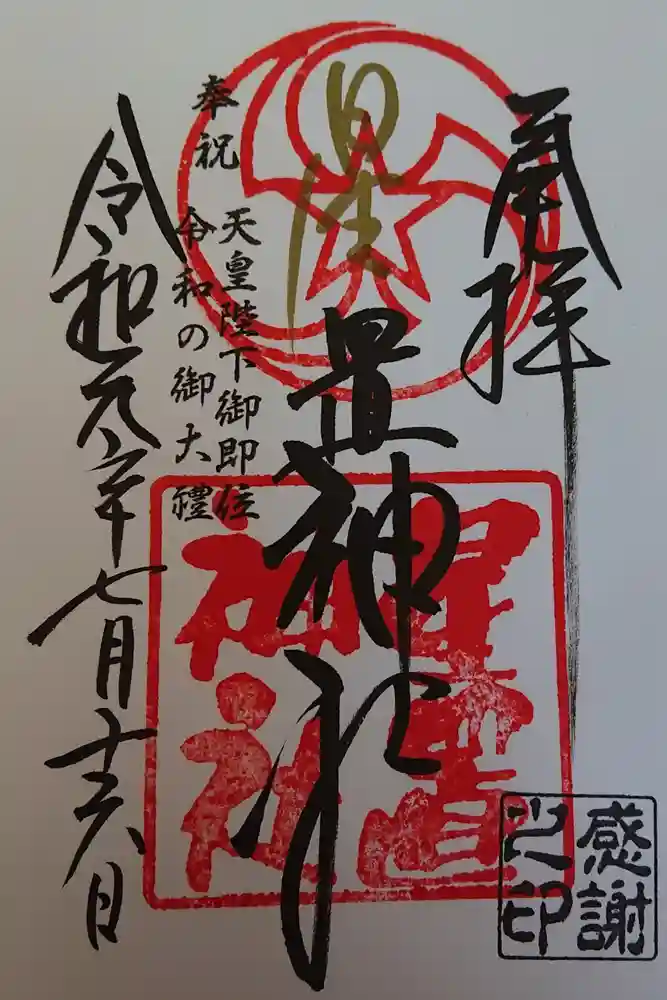 奉拝
星
置神社
奉祝
天皇陛下御即位
令和の御大禮
令和元年七月十六日
星置
神社
感謝
之印